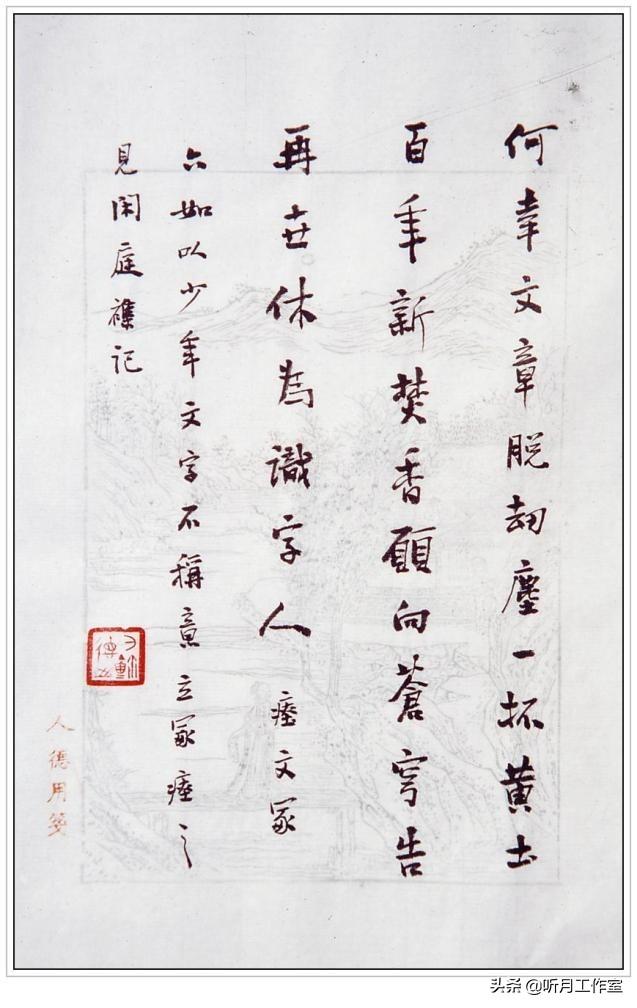 何幸文章脱劫塵一抔黄土
百年新焚香願向蒼穹告
再世休為識字人 瘞文冢
六如以少年文字不稱意立冢瘞之
見閑庭襍記
人德用箋
头条 @听月工作室